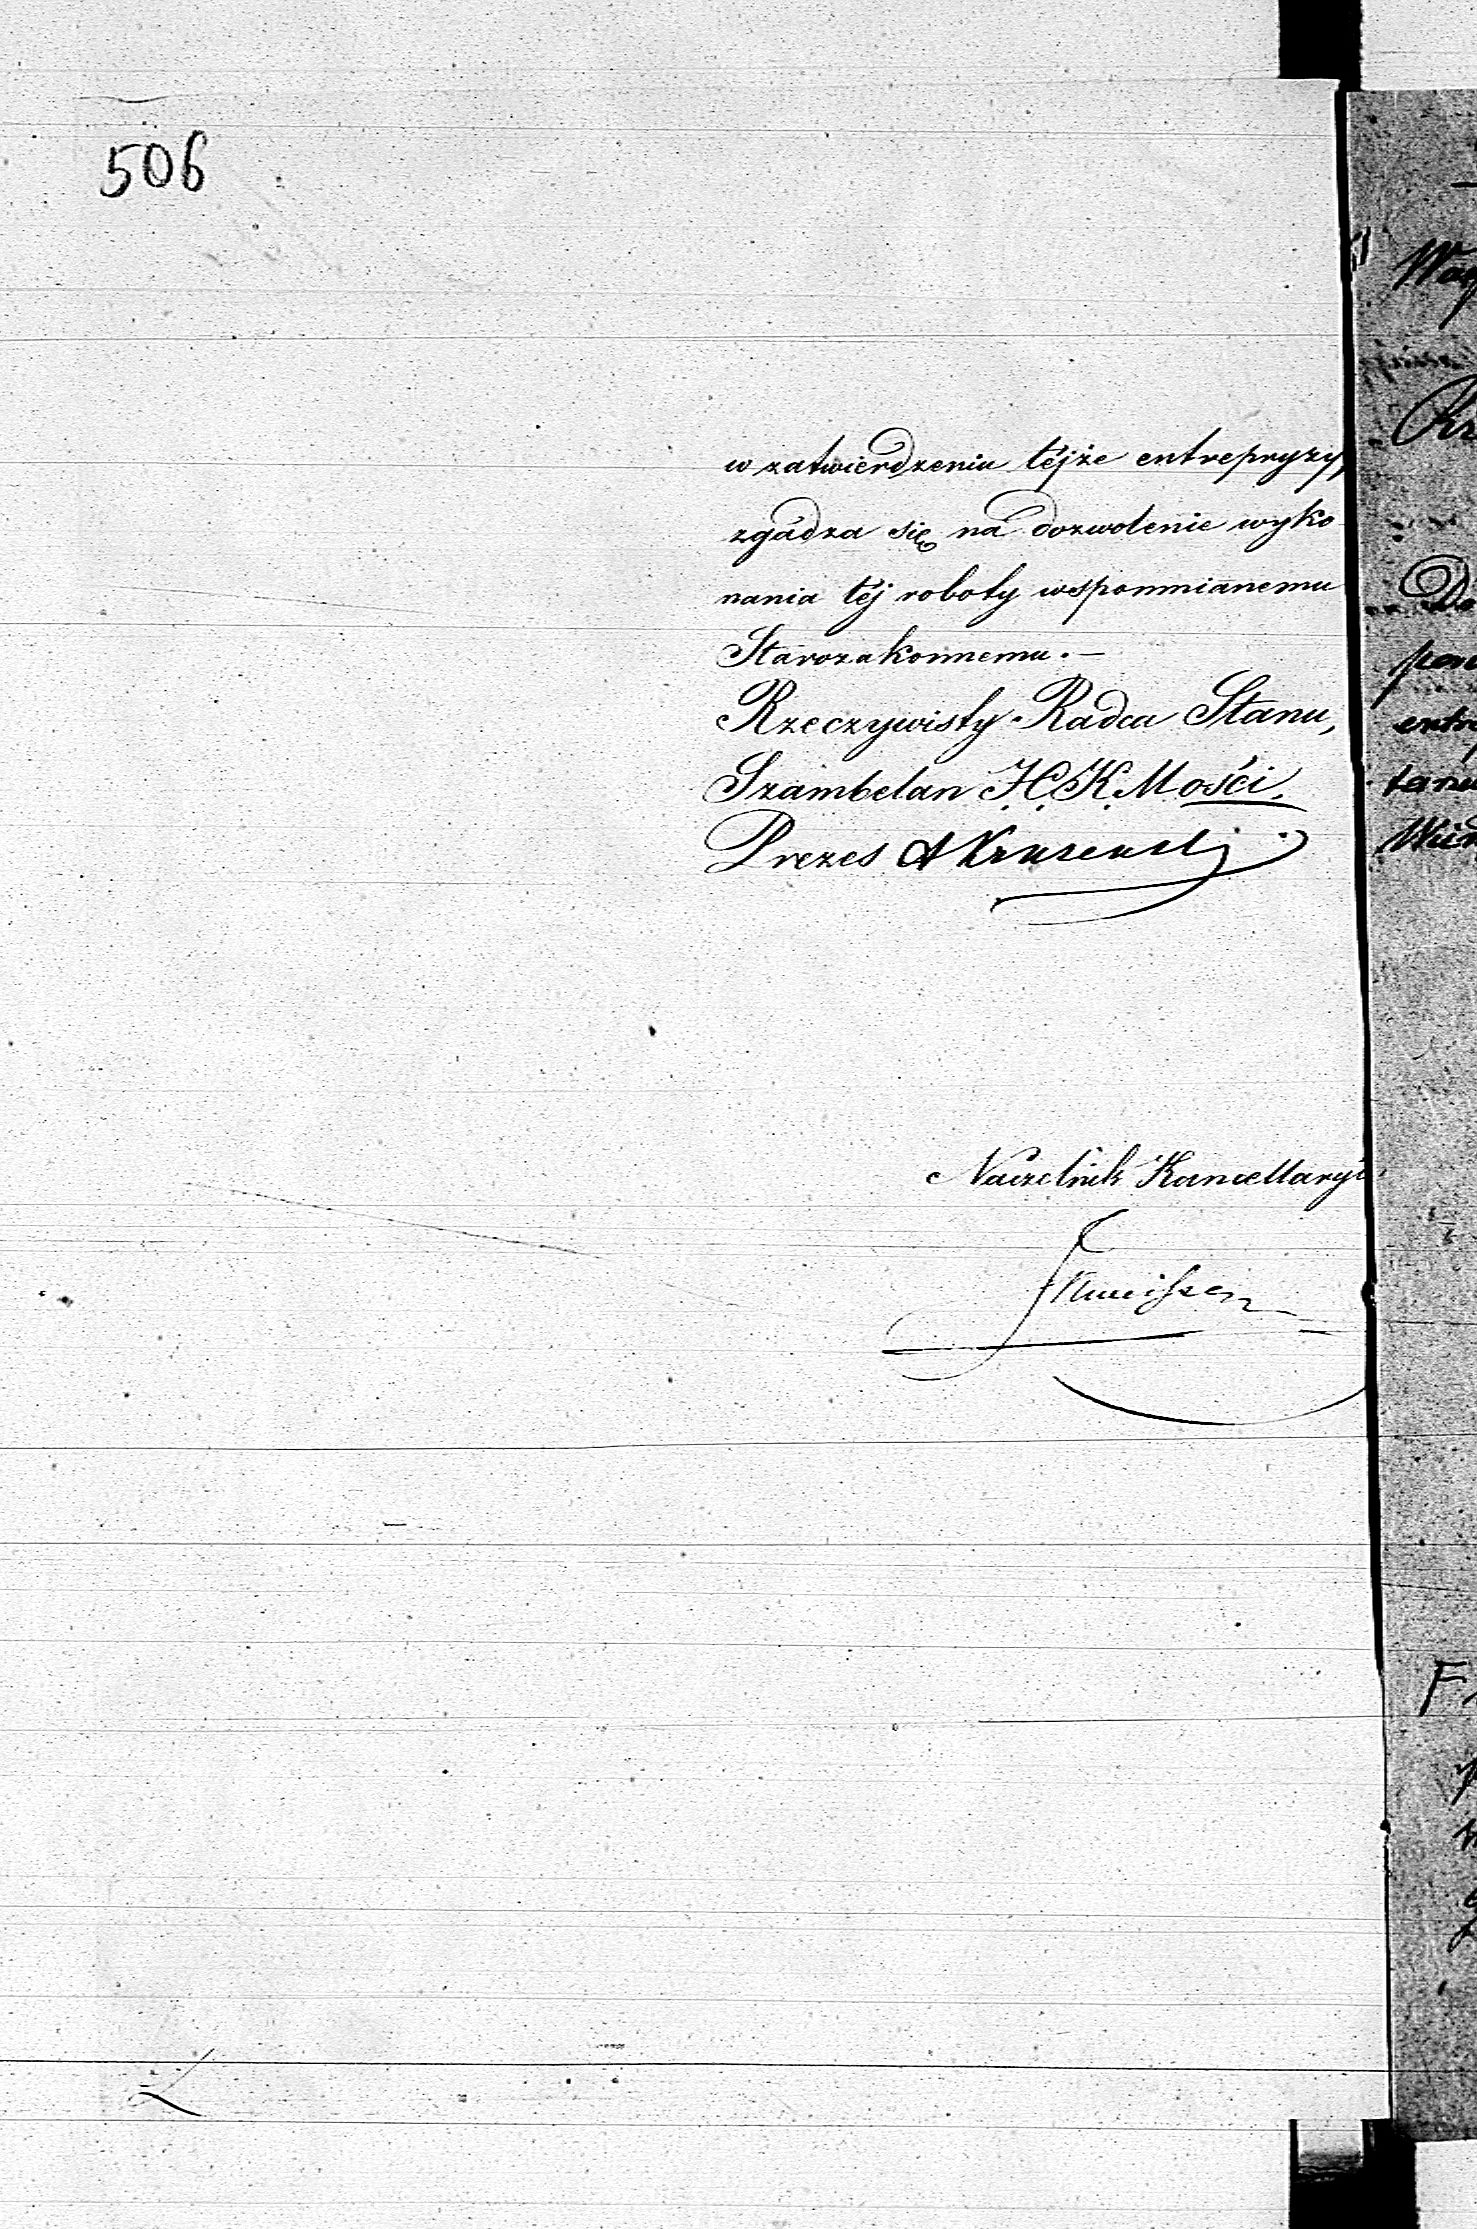 506
w zatwierdzeniu téjże entrepryzy,
zgádza się na dozwolenie wyko
nania téj roboty wspomnianemu
Starozakonnemu. —
Rzeczywisty Radca Stanu,
Szambelan J. C. K. Mości,
Prezes A
Naczelnik Kancellaryi